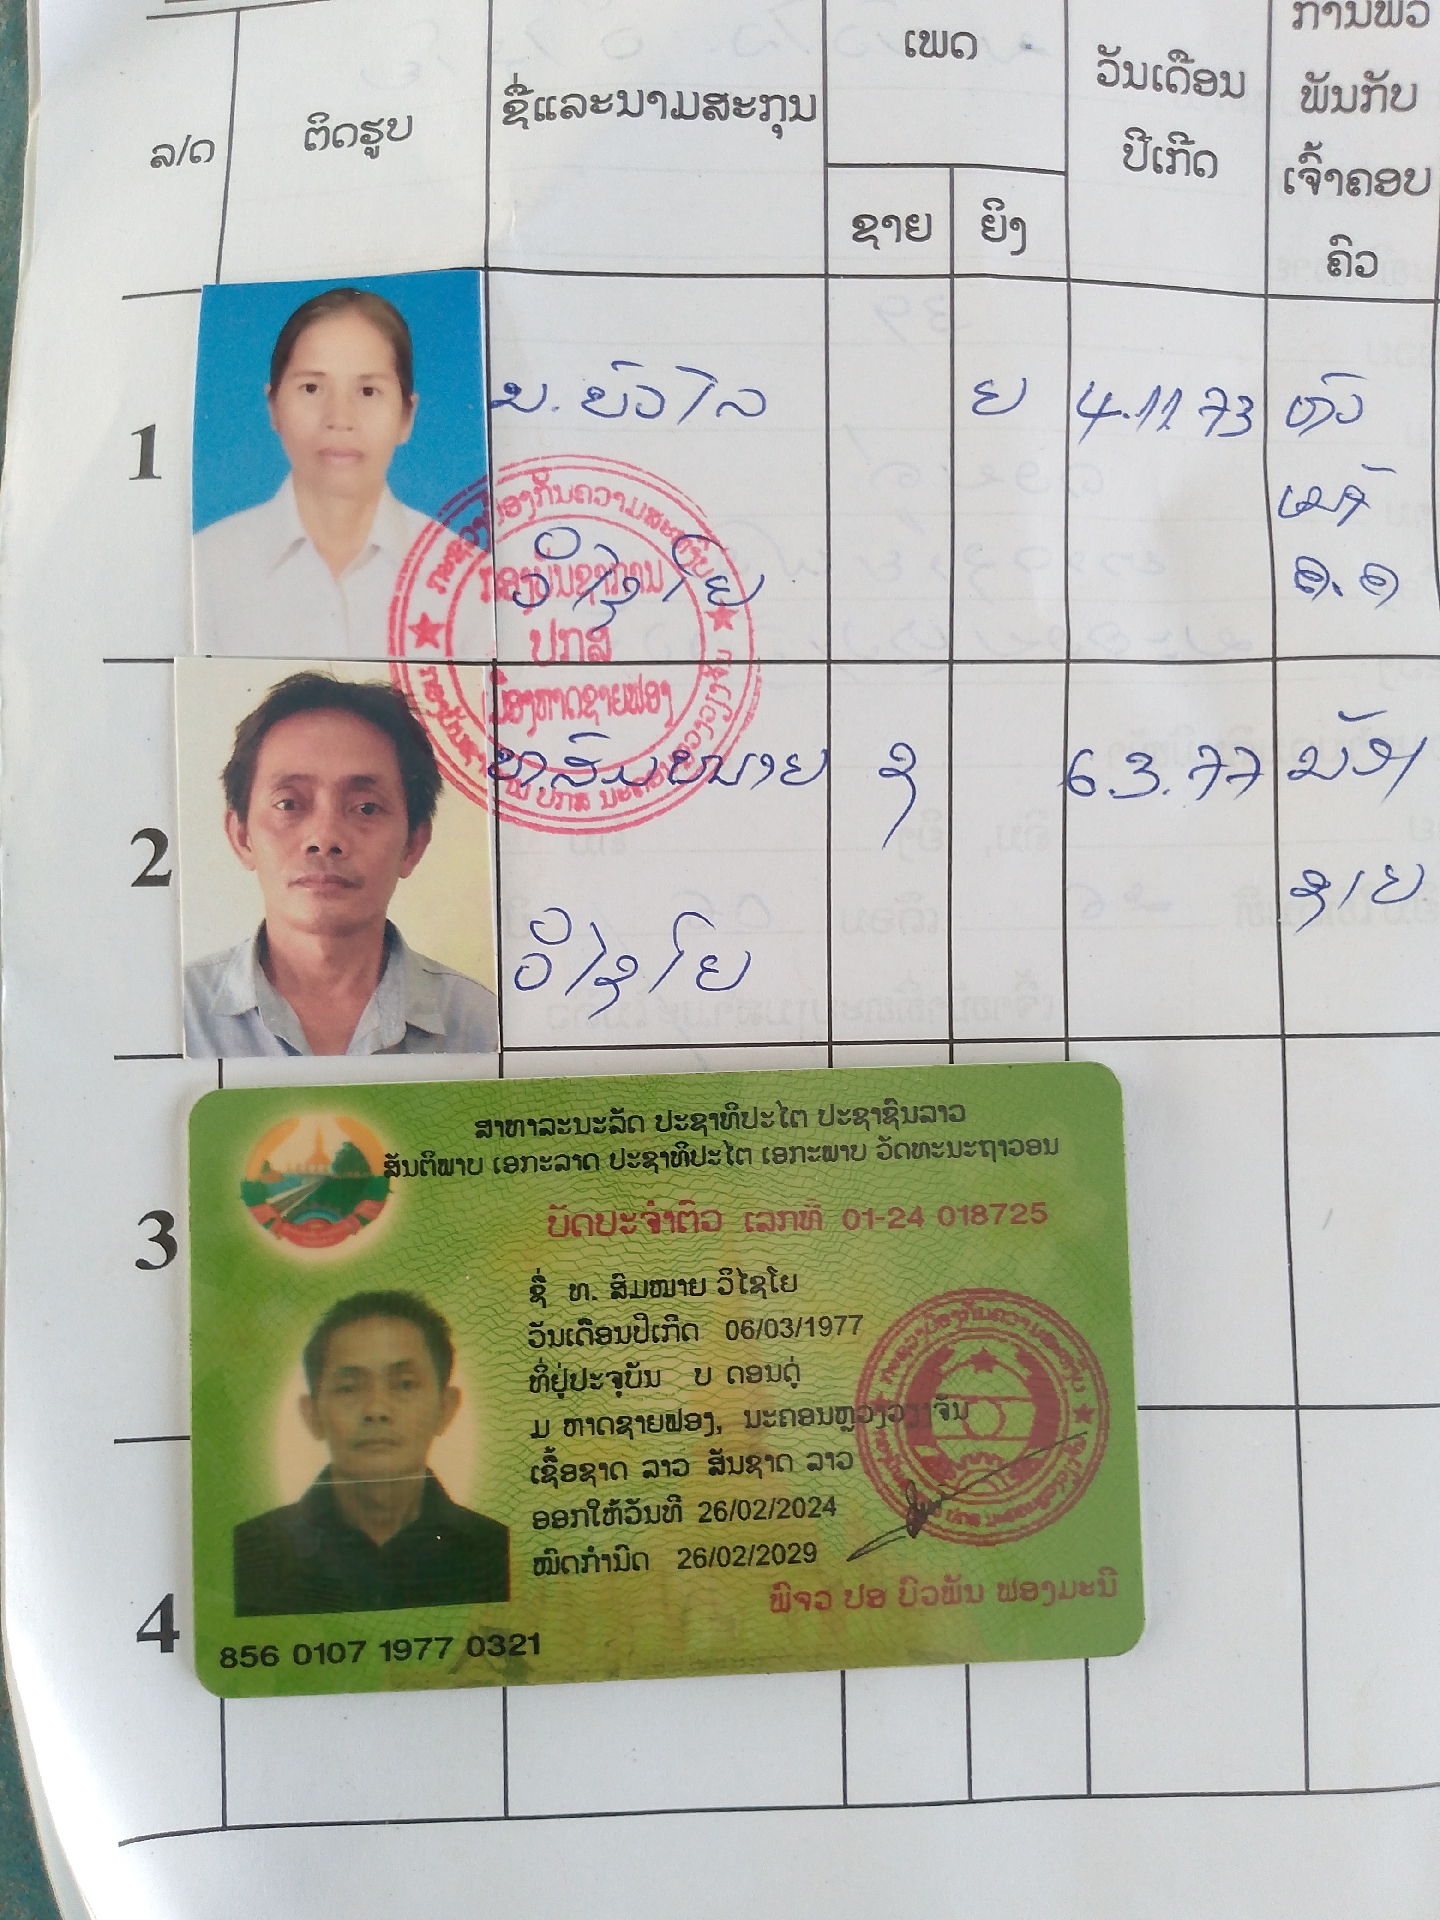 ລ/ດ
ຕິດຮູບ
ຊື່ແລະນາມສະກຸນ
ເພດ
ຊາຍ
ຍິງ
ວັນເດືອນ
ປີເກີດ
ການພົວ
ພັນກັບ
ເຈົ້າຄອບ
ຄົວ
1
ນ. ບົວໄລ
ວິໄຊໂຍ
ຍ
4.11.73
ຫົວ
ໜ້າ
ຄ.ຄ
ກະຊວງປ້ອງກັນຄວາມສະຫງົບ
ກອງບັນຊາການ
ປກສ
ເມືອງຫາດຊາຍຟອງ
2
ທ. ສົມໝາຍ
ວິໄຊໂຍ
ຊ
6.3.77
ນ້ອງ
ຊາຍ
3
4
ສາທາລະນະລັດ ປະຊາທິປະໄຕ ປະຊາຊົນລາວ
ສັນຕິພາບ ເອກະລາດ ປະຊາທິປະໄຕ ເອກະພາບ ວັດທະນະຖາວອນ
ບັດປະຈຳຕົວ ເລກທີ 01-24 018725
ຊື່ ທ. ສົມໝາຍ ວິໄຊໂຍ
ວັນເດືອນປີເກີດ 06/03/1977
ທີ່ຢູ່ປະຈຸບັນ ບ ດອນດູ່
ມ ຫາດຊາຍຟອງ, ນະຄອນຫຼວງວຽງຈັນ
ເຊື້ອຊາດ ລາວ ສັນຊາດ ລາວ
ອອກໃຫ້ວັນທີ 26/02/2024
ໝົດກຳນົດ 26/02/2029
ພົຈວ ປອ ບົວພັນ ຟອງມະນີ
856 0107 1977 0321